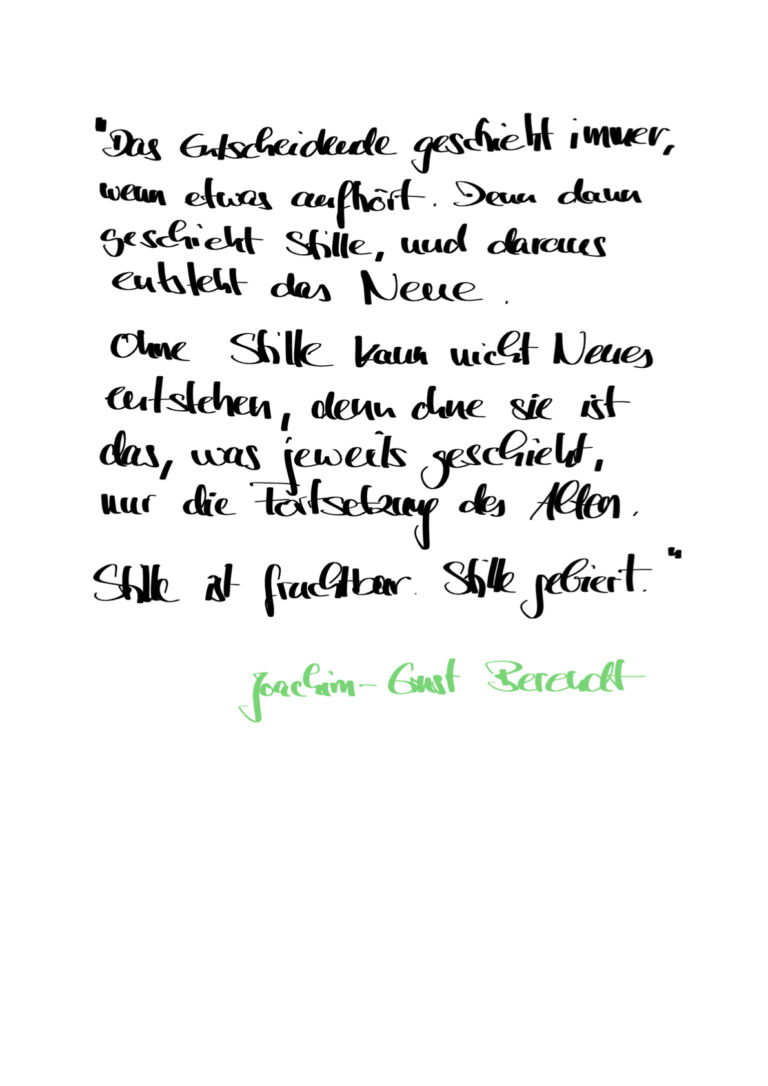 "Das Entscheidende geschieht immer,
wenn etwas aufhört. Denn dann
geschieht Stille, und daraus
entsteht das Neue.
Ohne Stille kann nicht Neues
entstehen, denn ohne sie ist
das, was jeweils geschieht,
nur die Fortsetzung des Alten.
Stille ist fruchtbar. Stille gebiert."
Joachim-Ernst Berendt